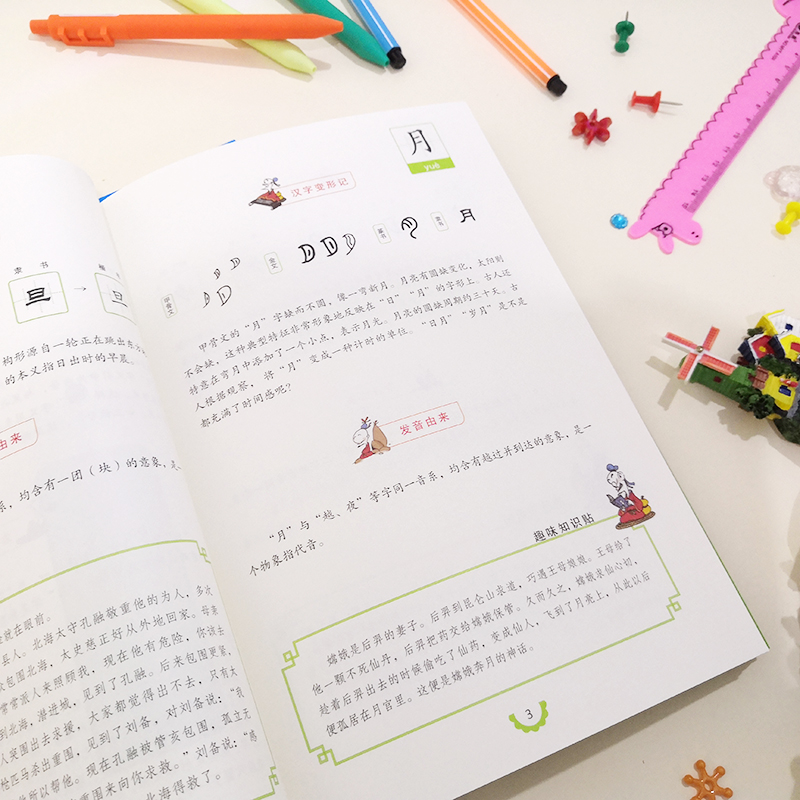 隶 书
旦
→
旦
构形源自一轮正在跳出东方
的本义指日出时的早晨。
由来
系，均含有一团（块）的意象，是
就在眼前。
县人。北海太守孔融敬重他的为人，多次
包围北海，太史慈正好从外地回家。母亲
常常派人来照顾我，现在他有危险，你该去
到北海，潜进城，见到了孔融。后来包围更紧，
人突围出去求援，大家都觉得出不去，只有太
枪匹马杀出重围，见到了刘备，对刘备说：“我
所以帮他。现在孔融被管亥包围，孤立无
重围来向你求救。”刘备说：“感
北海得救了。
月
yuè
汉字变形记
甲骨文
金文
篆书
隶书
月
甲骨文的“月”字缺而不圆，像一弯新月。月亮有圆缺变化，太阳则
不会缺，这种典型特征非常形象地反映在“日”“月”的字形上。古人还
特意在弯月中添加了一个小点，表示月光。月亮的圆缺周期约三十天。古
人根据观察，将“月”变成一种计时的单位。“日月”“岁月”是不是
都充满了时间感呢？
发音由来
“月”与“越、夜”等字同一音系，均含有越过并到达的意象，是一
个物象指代音。
趣味知识贴
嫦娥是后羿的妻子。后羿到昆仑山求道，巧遇王母娘娘。王母给了
他一颗不死仙丹，后羿把药交给嫦娥保管。久而久之，嫦娥求仙心切，
趁着后羿出去的时候偷吃了仙药，变成仙人，飞到了月亮上，从此以后
便孤居在月宫里。这便是嫦娥奔月的神话。
3